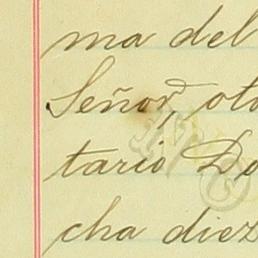 ma del
Señor, oto
tario Do
cha diez